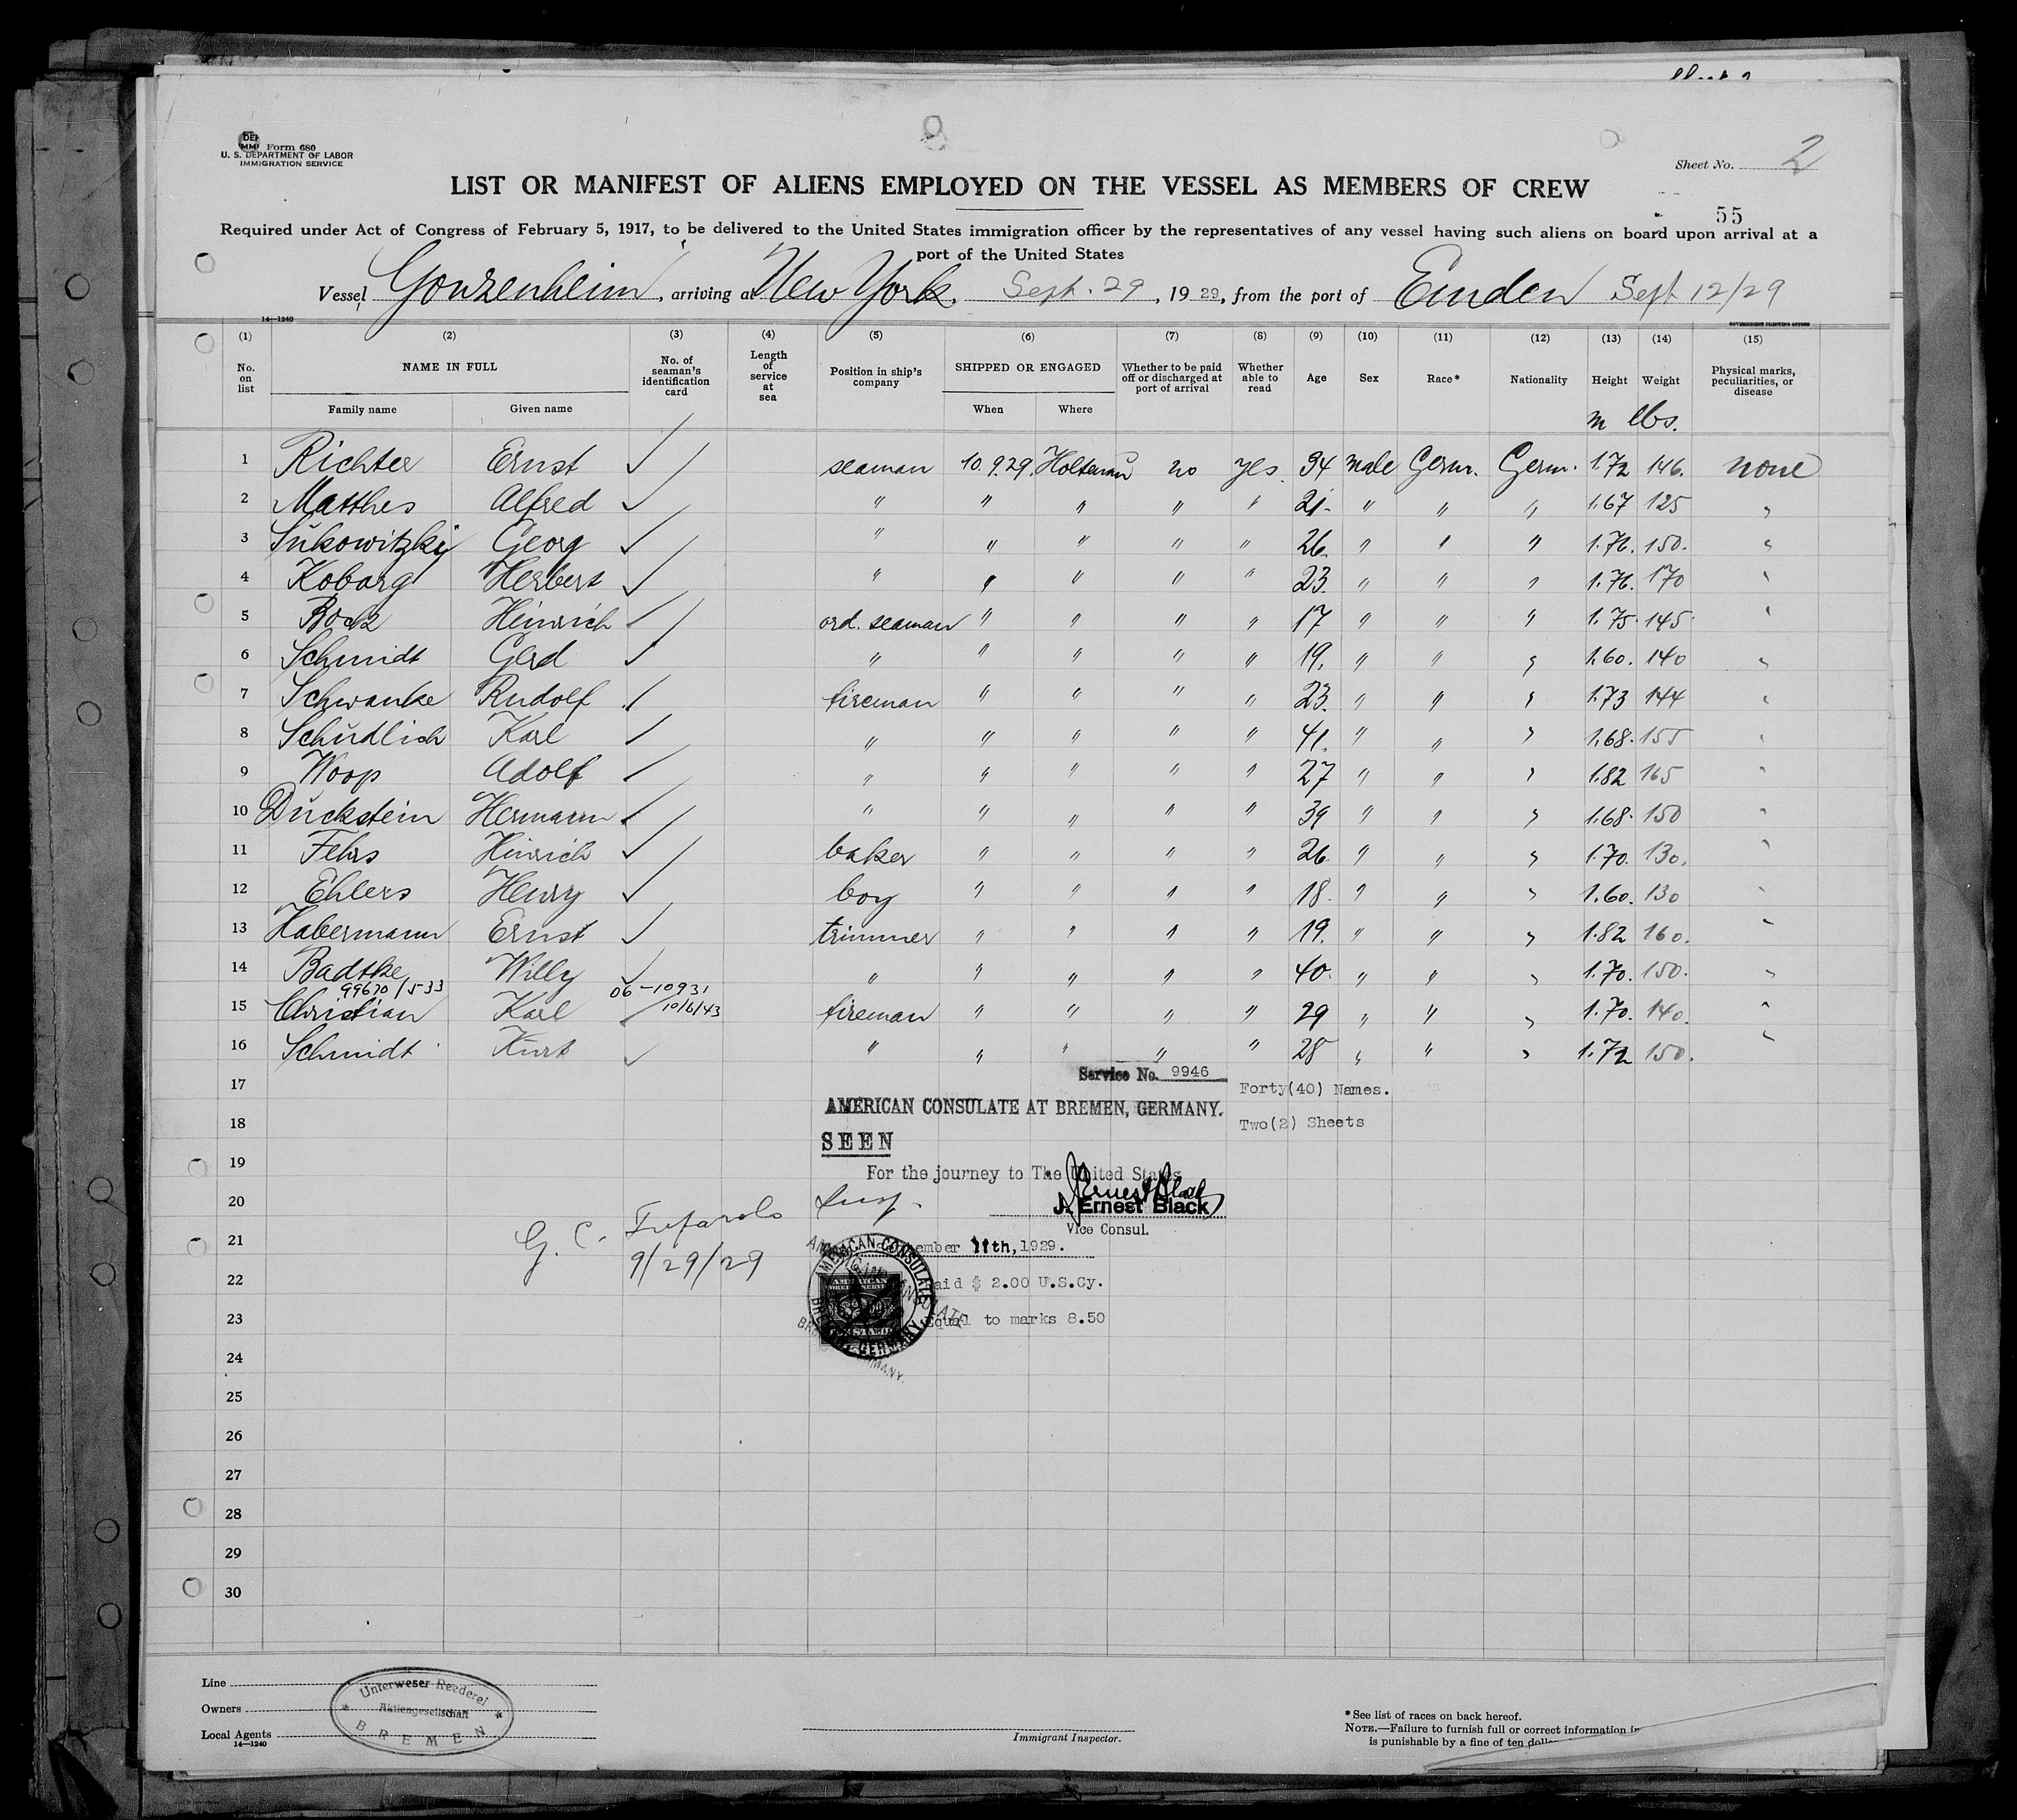 Form 680
U. S. DEPARTMENT OF LABOR
IMMIGRATION SERVICE
Sheet No. 2
LIST OR MANIFEST OF ALIENS EMPLOYED ON THE VESSEL AS MEMBERS OF CREW
55
Required under Act of Congress of February 5, 1917, to be delivered to the United States immigration officer by the representatives of any vessel having such aliens on board upon arrival at a
port of the United States
Vessel Gonzenheim, arriving at New York, Sept. 29, 1929, from the port of Emden Sept 12/29
14—1240
GOVERNMENT PRINTING OFFICE
(1) (2) (3) (4) (5) (6) (7) (8) (9) (10) (11) (12) (13) (14) (15)
No. on list
NAME IN FULL
Family name
Given name
No. of seaman's identification card
Length of service at sea
Position in ship's company
SHIPPED OR ENGAGED
When
Where
Whether to be paid off or discharged at port of arrival
Whether able to read
Age
Sex
Race*
Nationality
Height
Weight
Physical marks, peculiarities, or disease
m lbs.
1 Richter Ernst ✓ seaman 10.9.29. Holtenau no yes. 34 male Germ. Germ. 1.72 146. none
2 Matthes Alfred ✓ " " " " " 21. " " " 1.67 125 "
3 Sukowitzki Georg ✓ " " " " " 26. " " " 1.76. 150. "
4 Koborg Herbert ✓ " " " " " 23. " " " 1.76. 170 "
5 Bock Heinrich ✓ ord. seaman " " " " 17 " " " 1.75. 145. "
6 Schmidt Gerd ✓ " " " " " 19. " " " 1.60. 140 "
7 Schwanke Rudolf ✓ fireman " " " " 23. " " " 1.73 144 "
8 Schŭdlich Karl ✓ " " " " " 41. " " " 1.68. 155 "
9 Woop Adolf ✓ " " " " " 27 " " " 1.82 165 "
10 Dŭckstein Hermann ✓ " " " " " 39 " " " 1.68. 150 "
11 Fehrs Hinrich ✓ baker " " " " 26. " " " 1.70. 130. "
12 Ehlers Henry ✓ boy " " " " 18. " " " 1.60. 130 "
13 Habermann Ernst ✓ trimmer " " " " 19. " " " 1.82 160. "
14 Badtke Willy ✓ " " " " " 40. " " " 1.70. 150. "
99670/533 06-10931
15 Christian Karl ✓ 10/6/43 fireman " " " " 29 " " " 1.70. 140. "
16 Schmidt Kŭrt ✓ " " " " " 28 " " " 1.72 150. "
17
Service No. 9946
Forty(40) Names.
AMERICAN CONSULATE AT BREMEN, GERMANY.
18
Two(2) Sheets
SEEN
19
For the journey to The United States
20
J. Ernest Black
J. Ernest Black
Vice Consul.
G. C. Insp.
21
11th, 1929.
9/29/29
22
Paid $ 2.00 U.S.Cy.
23
Equal to marks 8.50
AMERICAN CONSULATE
BREMEN, GERMANY.
24
25
26
27
28
29
30
Line
Owners
Local Agents
14—1240
Unterweser Reederei
Aktiengesellschaft
BREMEN
Immigrant Inspector.
*See list of races on back hereof.
NOTE.—Failure to furnish full or correct information
is punishable by a fine of ten